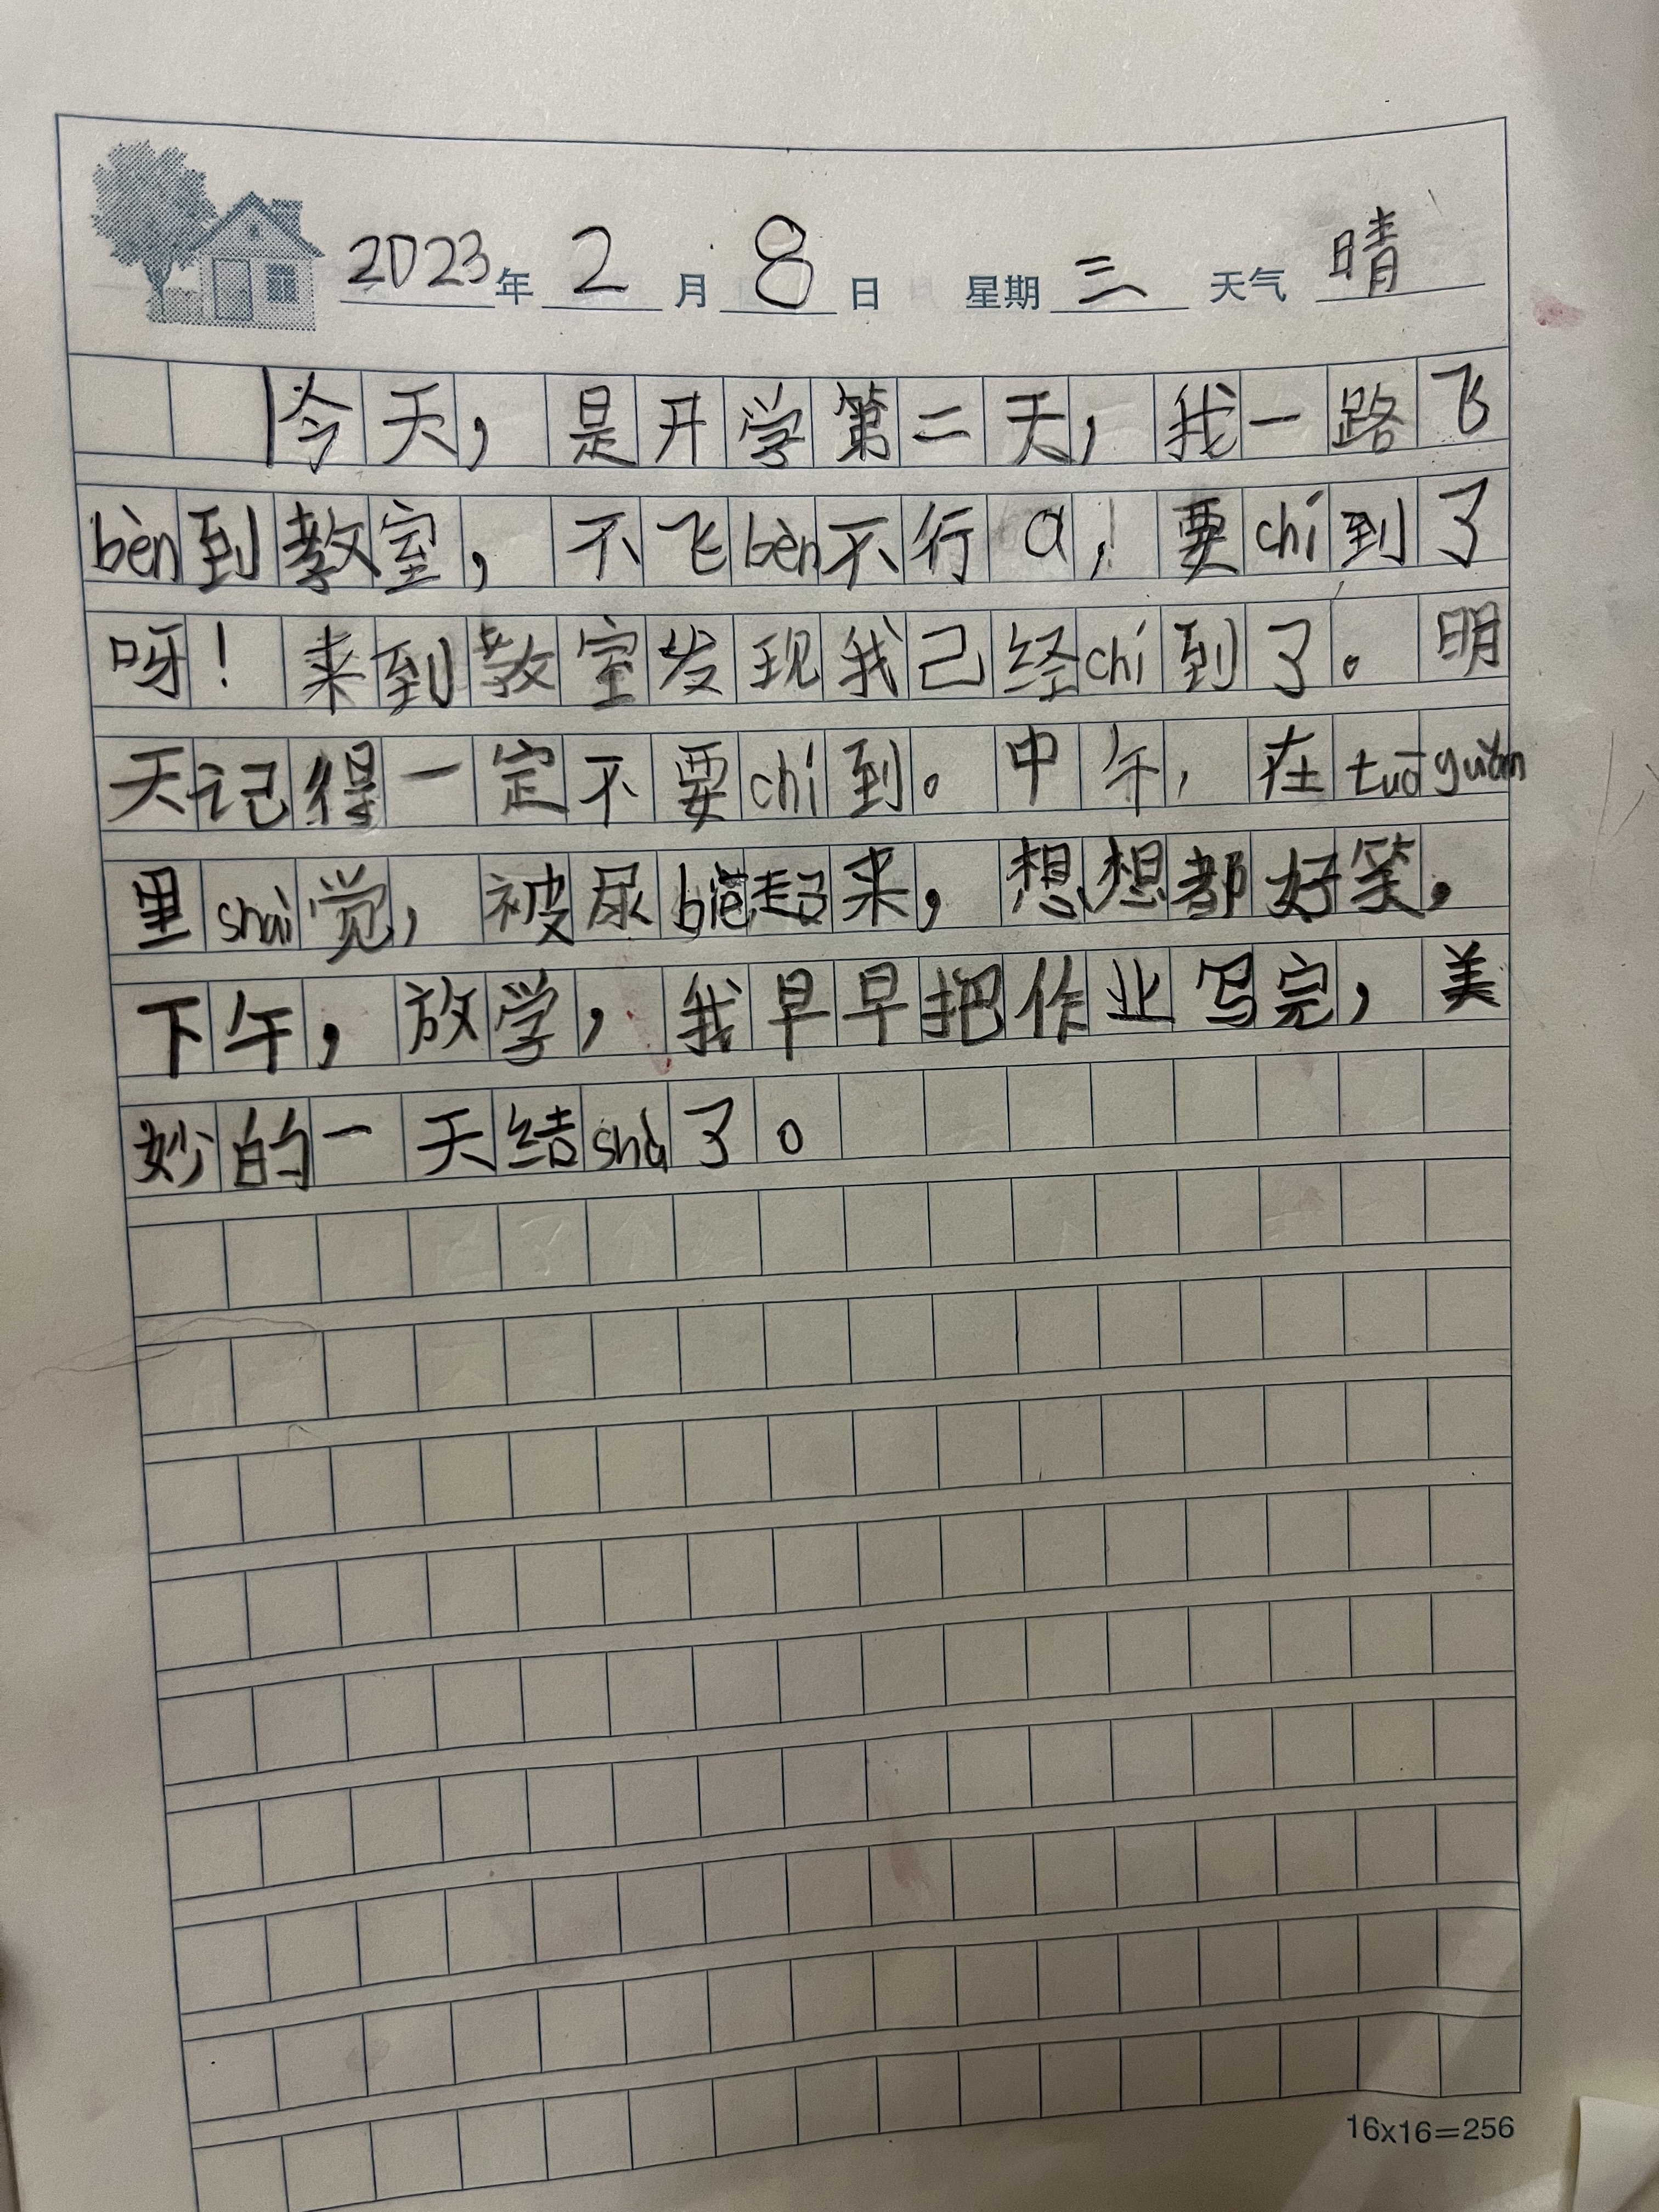 2023年 2 月 8 日 星期 三 天气 晴
今天，是开学第二天，我一路飞
bèn到教室，不飞bèn不行a！要chí到了
呀！来到教室发现我己经chí到了。明
天记得一定不要chí到。中午，在tuōguǎn
里shui觉，被尿biē起来，想想都好笑，
下午，放学，我早早把作业写完，美
妙的一天结shù了。
16x16=256